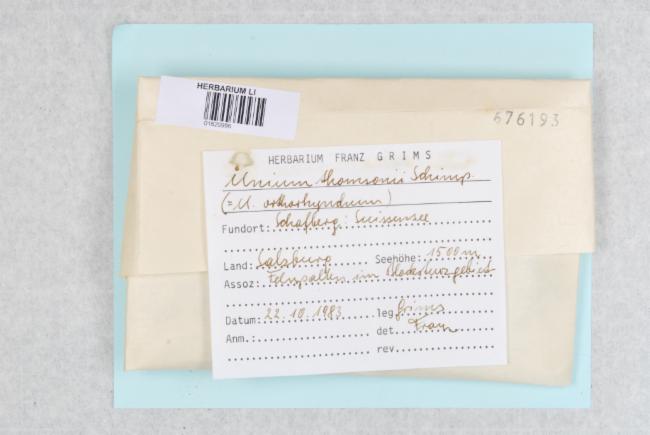 HERBARIUM LI
01620996
676193
HERBARIUM FRANZ GRIMS
Mnium thomsonii Schimp
(=M. orthorhynchum)
Fundort: Schafberg: Suissensee
Land: Salzburg Seehöhe: 1500m
Assoz: Felsspalten im Blocksturzgebiet
Datum: 22.10.1983 leg Grims
Anm.: det. Franz
rev.